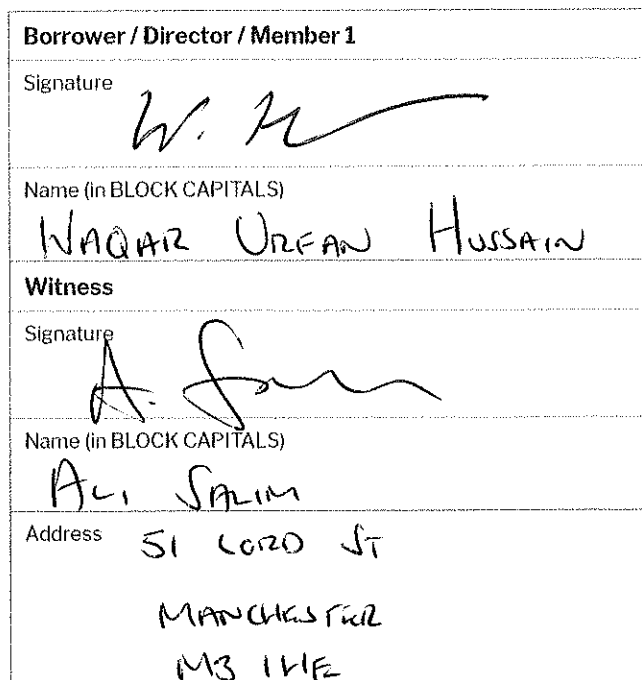 Borrower / Director / Member 1
Signature
W. H
Name (in BLOCK CAPITALS)
WAQAR URFAN HUSSAIN
Witness
Signature
A. S
Name (in BLOCK CAPITALS)
ALI SALIM
Address 51 LORD ST
MANCHESTER
M3 1HE